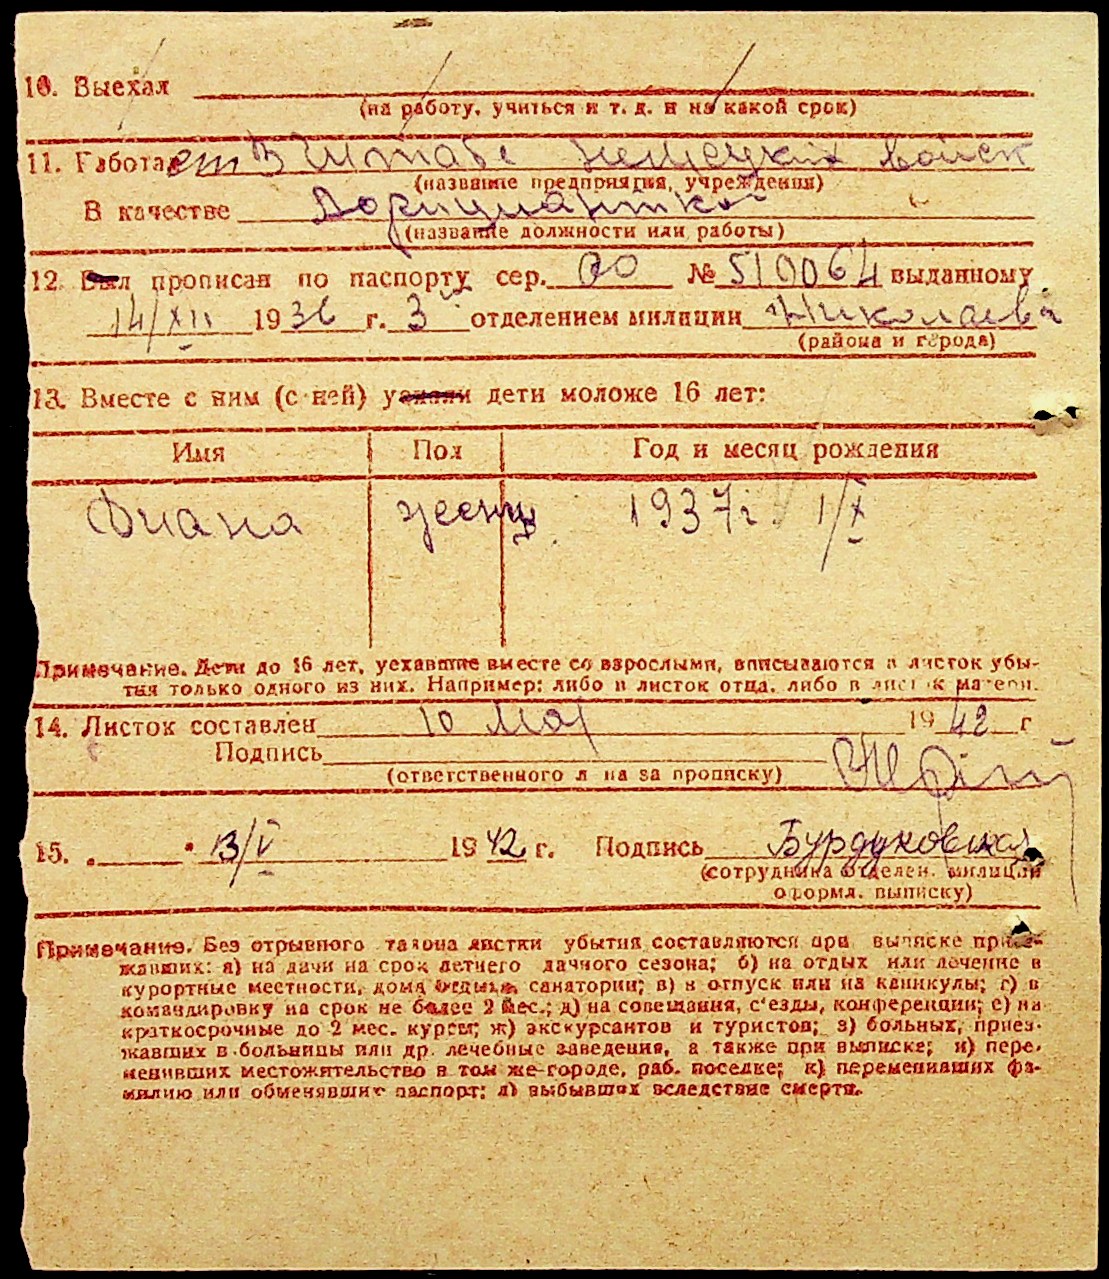 10. Выехал
(на работу, учиться и т. д. и на какой срок)
11. Работает в Штабе Немецких войск
(название предприятия, учреждения)
В качестве
(название должности или работы)
12. Был прописан по паспорту сер. № 510064 выданному
14/XII 1936 г. 3 отделением милиции Николаева
(района и города)
13. Вместе с ним (с ней) уехали дети моложе 16 лет:
Имя Пол Год и месяц рождения
Диана женщ. 1937г 1/X
Примечание. Дети до 16 лет, уехавшие вместе со взрослыми, вписываются в листок убы-
тия только одного из них. Например: либо в листок отца, либо в листок матери.
14. Листок составлен 10 Мая 1942 г
Подпись
(ответственного л на за прописку)
15. „ " 13/V 1942 г. Подпись Бурдуковская
(сотрудника отделен. милиции
оформл. выписку)
Примечание. Без отрывного талона листки убытия составляются при выписке приез-
жавших: а) на дачи на срок летнего дачного сезона; б) на отдых или лечение в
курортные местности, дома отдыха, санатории; в) в отпуск или на каникулы; г) в
командировку на срок не более 2 мес.; д) на совещания, с'езды, конференции; е) на
краткосрочные до 2 мес. курсы; ж) экскурсантов и туристов; з) больных, приез-
жавших в больницы или др. лечебные заведения, а также при выписке; и) пере-
менивших местожительство в том же городе, раб. поселке; к) переменивших фа-
милию или обменявших паспорт; л) выбывших вследствие смерти.